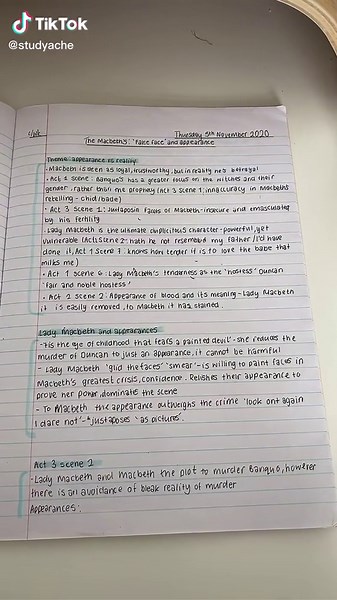 TikTok
@studyache
Thursday 5th November 2020
The Macbeth's: 'False Face' and appearance
Theme: appearance vs reality
- Macbeth is seen as loyal, trustworthy, but in reality he a betrayal
- Act 1 scene : Banquo's has a greater focus on the witches and their
gender, rather than the prophecy (act 3 scene 1, innaccuracy in Macbeths
retelling - chid/bade)
- Act 3 scene 1: Juxtaposin faces of Macbeth - insecure and emasculated
by his fertility
- Lady Macbeth is the ultimate duplicitous character - powerful, yet
vulnerable (Act 2 scene 2: hath he not resembled my father / I'd have
done it, Act 1 scene 7: knows how tender it is to love the babe that
milks me)
- Act 1 scene 6: Lady Macbeth's tenderness as the 'hostess' Duncan
'fair and noble hostess'
- Act 2 scene 2: Appearance of blood and its meaning - Lady Macbeth
it is easily removed, to Macbeth it has stained.
Lady Macbeth and appearances
- 'tis the eye of childhood that fears a painted devil' - she reduces the
murder of Duncan to just an appearance, it cannot be harmful
- Lady Macbeth 'gild the faces' 'smear' - is willing to paint faces in
Macbeth's greatest crisis, confidence. Relishes their appearance to
prove her power, dominate the scene
- To Macbeth the appearance outweighs the crime 'look ont again
I dare not' - juxtaposes 'as pictures'.
Act 3 scene 2
- Lady Macbeth and Macbeth the plot to murder Banquo, however
there is an avoidance of bleak reality of murder
Appearances'.